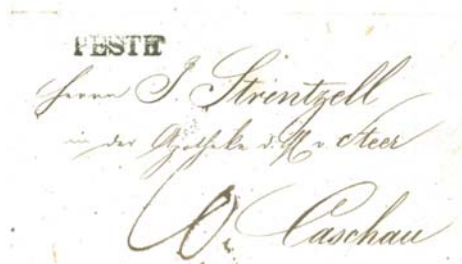 PESTH
Herrn J. Strintzell
in der Apotheke d. M v. Steer
Caschau